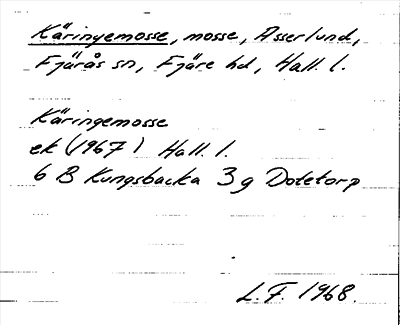 Käringemosse, mosse, Asserlund,
Fjärås sn, Fjäre hd, Hall. l.
Käringemosse
ek (1967) Hall. l.
6 B Kungsbacka 3 g Dotetorp
L.F. 1968.